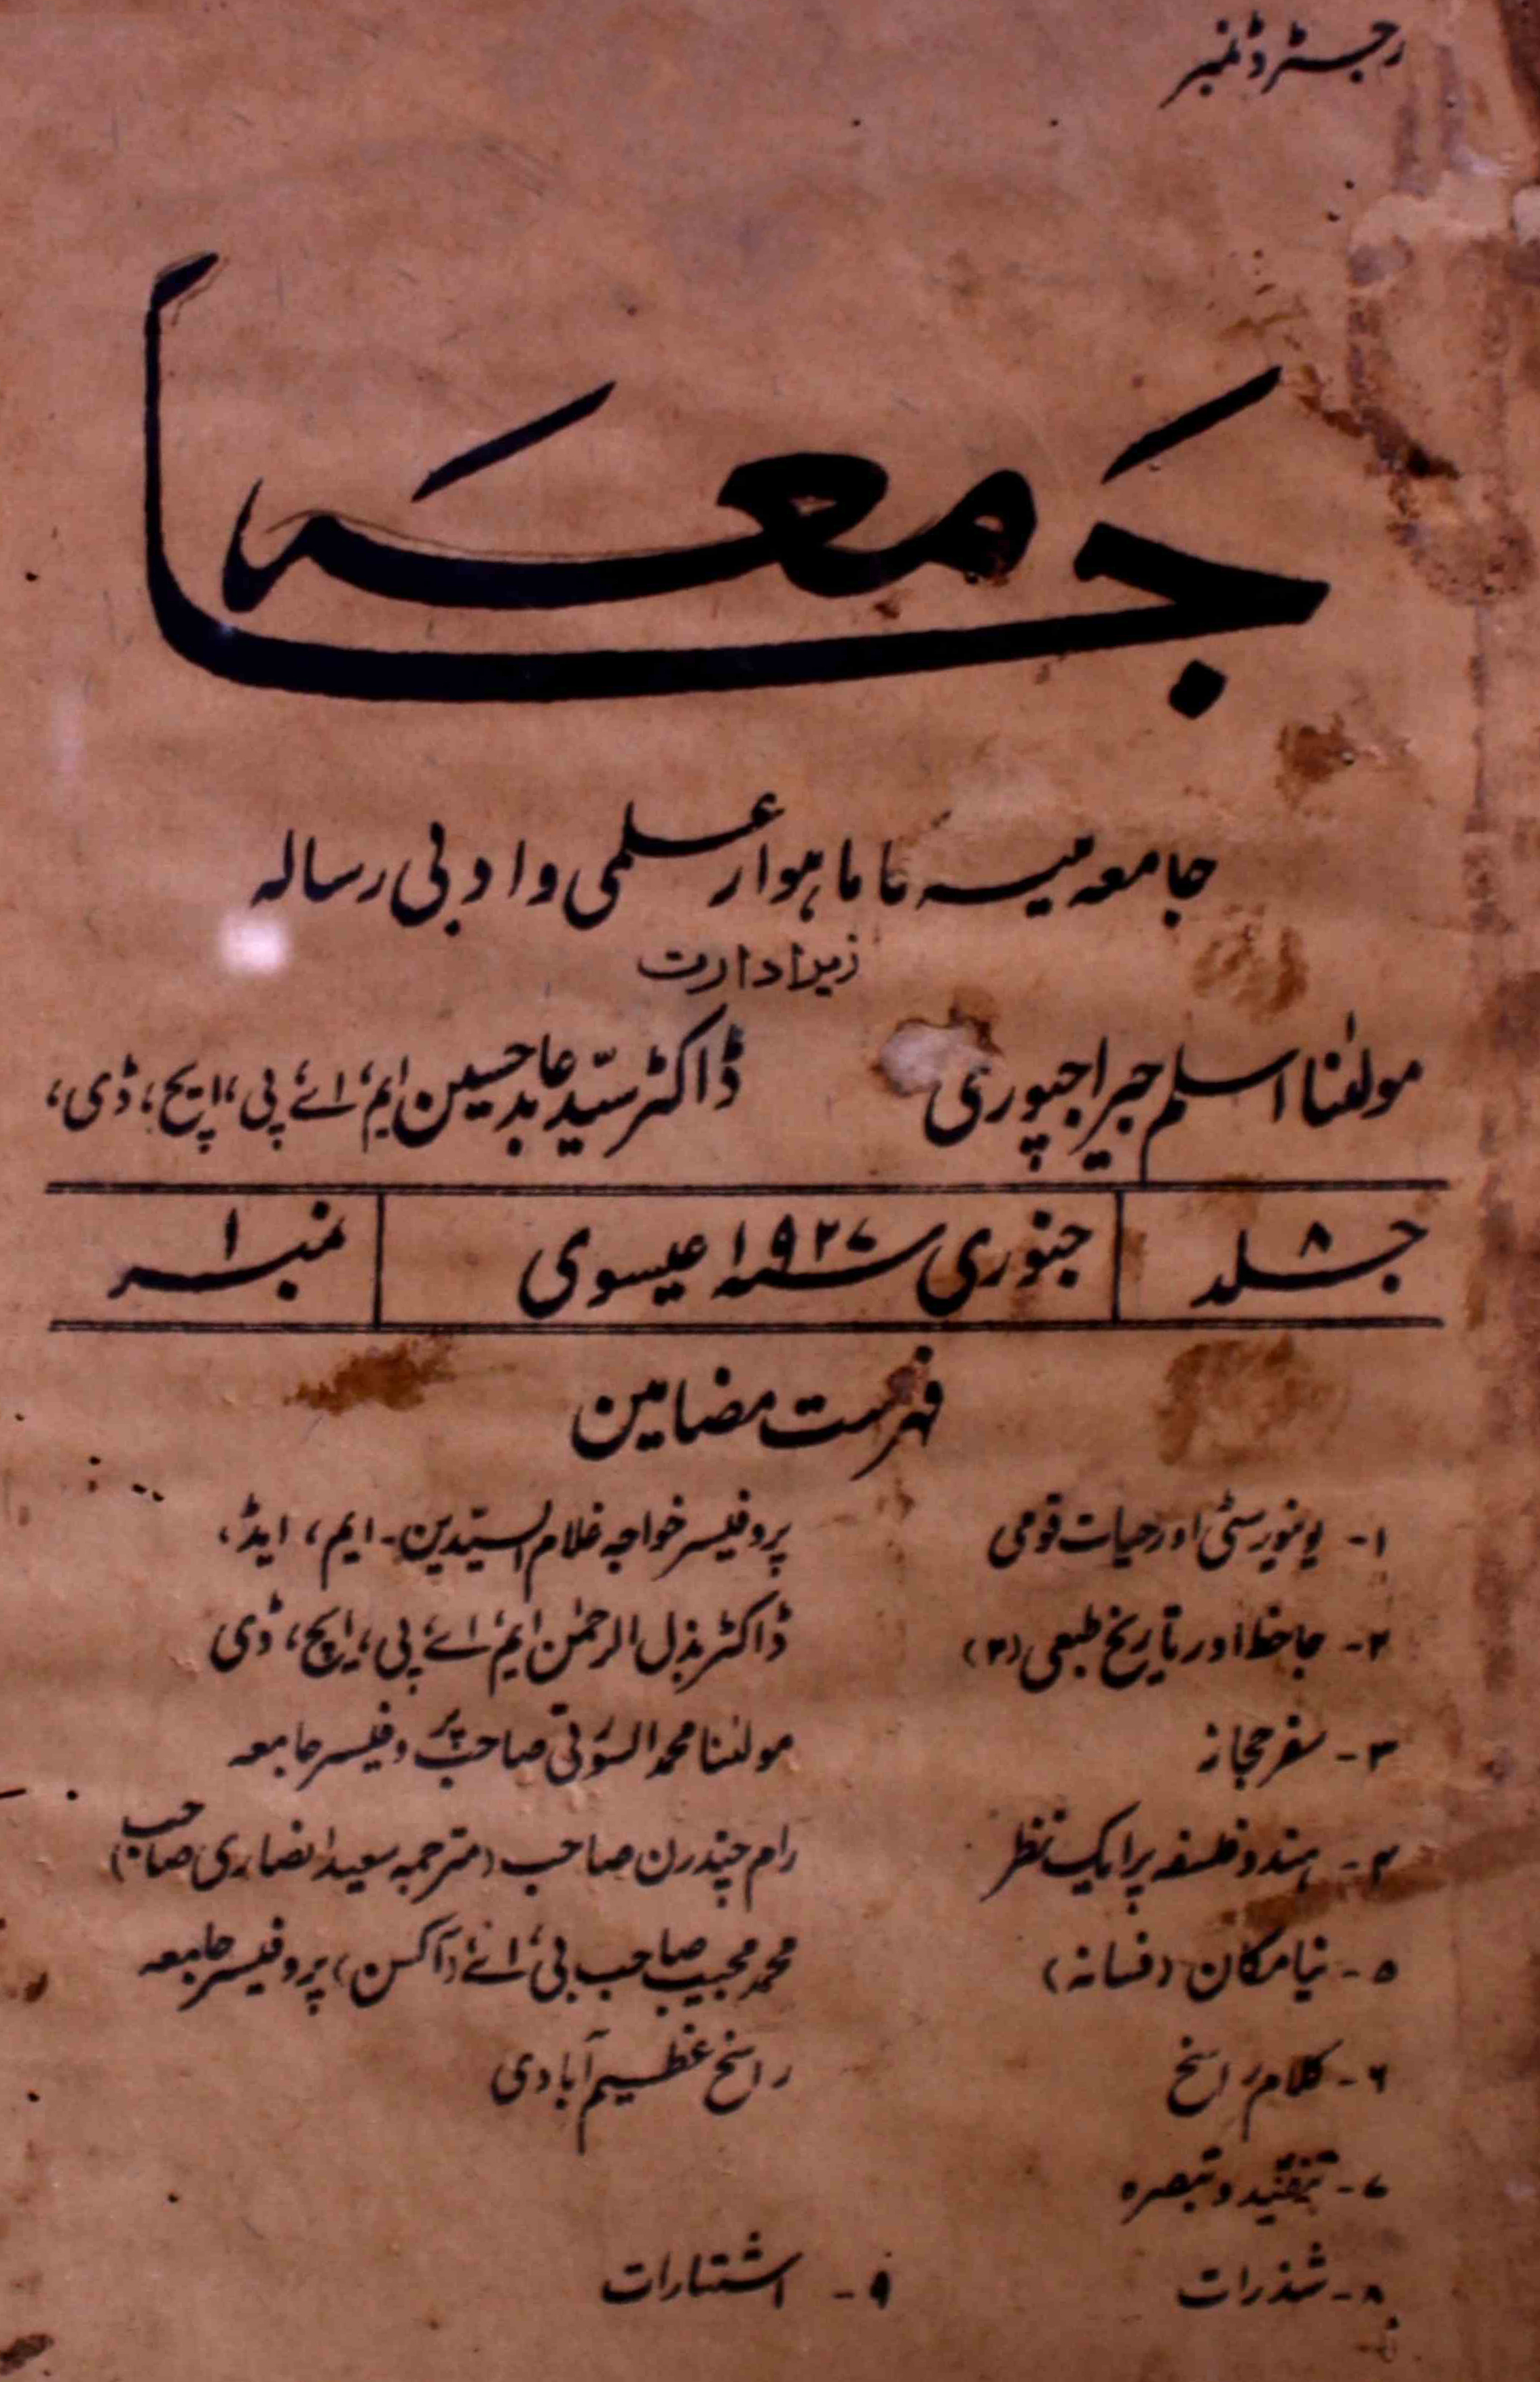 رجسٹرڈ نمبر
جامعہ
جامعہ ملیہ کا ماہوار علمی و ادبی رسالہ
زیر ادارت
مولٰنا اسلم جیراجپوری ڈاکٹر سیّد عابد حسین ایم، اے، پی، ایچ، ڈی،
جلد ۸ جنوری سنہ ۱۹۲۷ عیسوی نمبر ۱
فہرست مضامین
۱- یونیورسٹی اور حیات قومی پروفیسر خواجہ غلام السیّدین - ایم، ایڈ،
۲- جاحظ اور تاریخ طبعی (۲) ڈاکٹر بذل الرحمٰن ایم، اے، پی، ایچ، ڈی
۳- سفر حجاز مولٰنا محمد السّورتی صاحب پروفیسر جامعہ
۴- ہندو فلسفہ پر ایک نظر رام چندرن صاحب (مترجمہ سعید انصاری صاحب)
۵- نیا مکان (فسانہ) محمد مجیب صاحب بی، اے (آکسن) پروفیسر جامعہ
۶- کلام راسخ راسخ عظیم آبادی
۷- تنقید و تبصرہ
۸- شذرات ۹- اشتہارات